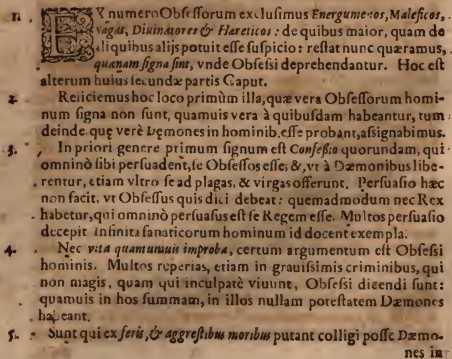 1. EX numero Obſeſſorum excluſimus Energumenos, Maleficos,
Sagas, Diuinatores & Hæreticos: de quibus maior, quam de
aliquibus alijs potuit eſſe ſuſpicio: reſtat nunc quæramus,
quænam ſigna ſint, vnde Obſeſsi deprehendantur. Hoc eſt
alterum huius ſecundæ partis Caput.
2. Reijciemus hoc loco primùm illa, quæ vera Obſeſſorum homi-
num ſigna non ſunt, quamuis vera à quibuſdam habeantur, tum
deinde quę verè Dęmones in hominib. eſſe probant, aſsignabimus.
3. In priori genere primum ſignum eſt Confeſsio quorundam, qui
omninò ſibi perſuadent, ſe Obſeſſos eſſe; &, vt à Dæmonibus libe-
rentur, etiam vltro ſe ad plagas, & virgas offerunt. Perſuaſio hæc
non facit, vt Obſeſſus quis dici debeat: quemadmodum nec Rex
habetur, qui omninò perſuaſus eſt ſe Regem eſſe. Multos perſuaſio
decepit Infinita fanaticorum hominum id docent exempla.
4. Nec vita quamumuis improba, certum argumentum eſt Obſeſsi
hominis. Multos reperias, etiam in grauiſsimis criminibus, qui
non magis, quam qui inculpatè viuunt, Obſeſsi dicendi ſunt:
quamuis in hos ſummam, in illos nullam poteſtatem Dæmones
habeant.
5. Sunt qui ex feris, & aggreſtibus moribus putant colligi poſſe Dæmo-
nes in